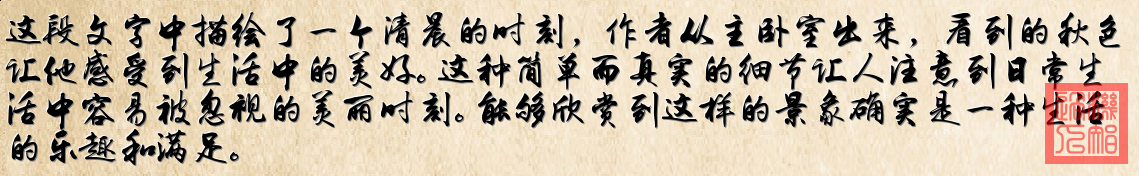 这段文字中描绘了一个清晨的时刻，作者从主卧室出来，看到的秋色
让他感受到生活中的美好。这种简单而真实的细节让人注意到日常生
活中容易被忽视的美丽时刻。能够欣赏到这样的景象确实是一种生活
的乐趣和满足。